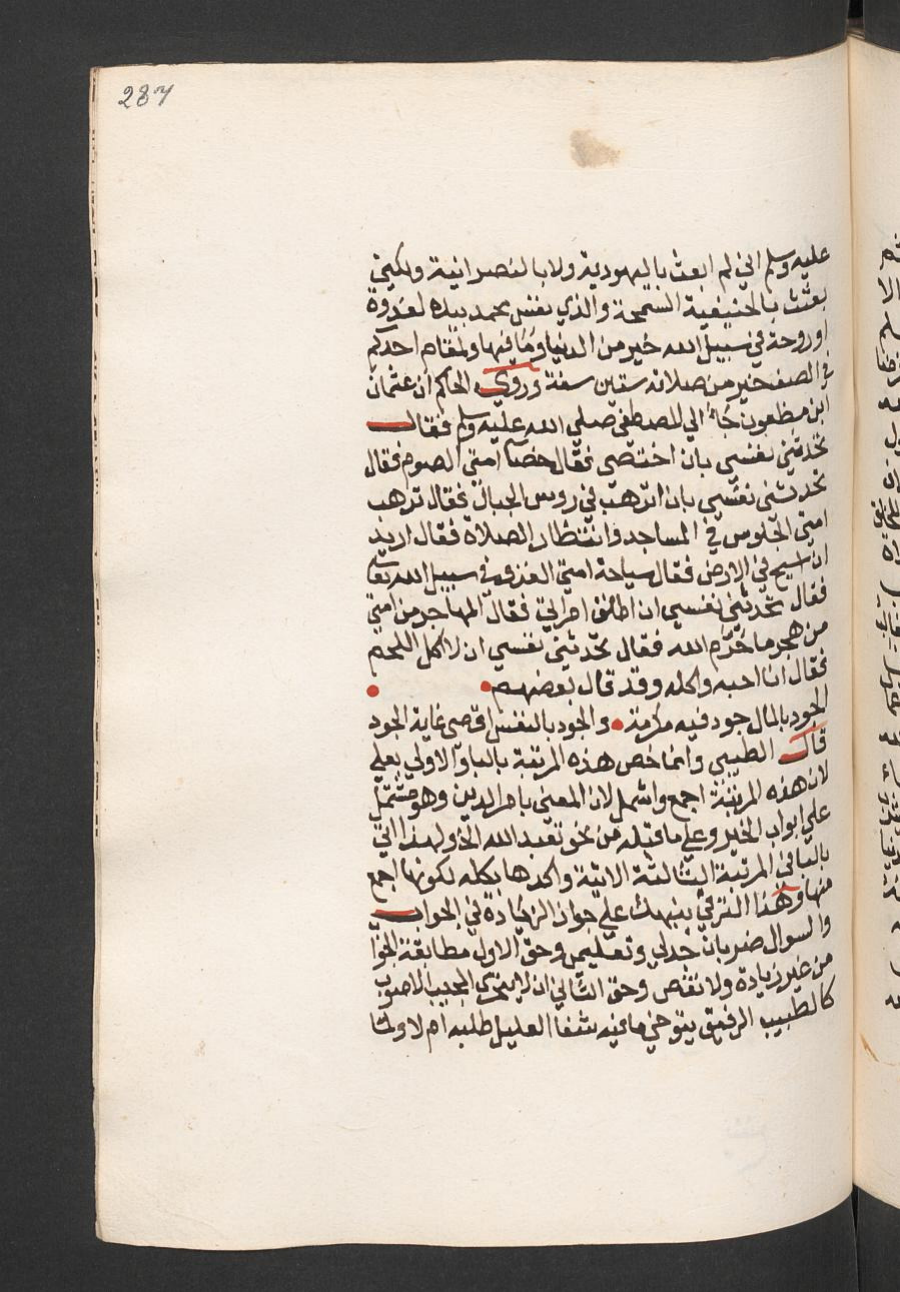 287
عليه وسلم اني لم ابعث باليهودية ولا بالنصرانية ولكني
بعثت بالحنيفية السمحة والذي نفس محمد بيده لغدوة
او روحة في سبيل الله خير من الدنيا وما فيها ولمقام احدكم
في الصف خير من صلاته ستين سنة وروي الحاكم ان عثمان
ابن مظعون جاء الي المصطفي صلي الله عليه وسلم فقال
تحدثني نفسي بان اختصي فقال خصا امتي الصوم فقال
تحدثني نفسي بان اترهب في روس الجبال فقال ترهب
امتي الجلوس في المساجد وانتظار الصلاة فقال اريد
ان اسيح في الارض فقال سياحة امتي الغزو في سبيل الله تعا
فقال تحدثني نفسي ان اطلق امراتي فقال المهاجر من امتي
من هجر ما حرم الله فقال تحدثني نفسي ان لا اكل اللحم
فقال انا احبه واكله وقد قال بعضهم
الجود بالمال جود فيه مكرمة والجود بالنفس اقصي غاية الجود
قال الطيبي وانما خص هذه المرتبة بالبا والاولي بعلي
لان هذه المرتبة اجمع واشمل لان المعني بامر الدين وهو مشتمل
علي ابواب الخير وعلي ما قبله من نحو تعبد الله الخ ولهذا اتي
بالبا في المرتبة الثالثة الاتية واكدها بكله لكونها اجمع
منها وهذا الترقي ينبهك علي جواز الزيادة في الجواب
والسوال ضربان جدلي وتعليمي وحق الاول مطابقة الجوا
من غير زيادة ولا نقص وحق الثاني ان يتحري المجيب الاصوب
كالطبيب الرفيق يتوخي ما فيه شفا العليل طلبه ام لا ولما